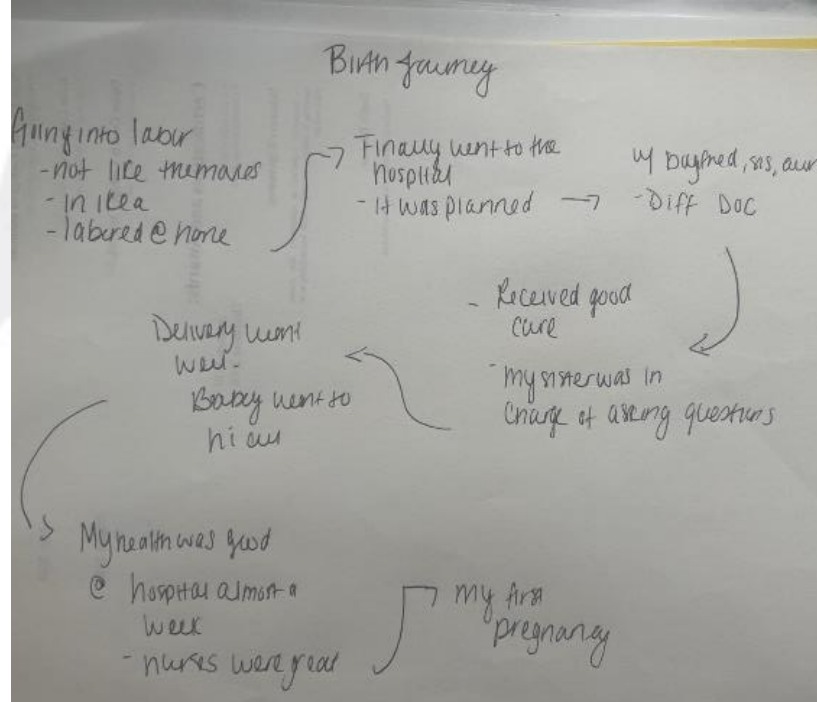 Birth Journey
Going into labor
- not like the movies
- in ikea
- labored @ home
Finally went to the
hospital
- It was planned
w/ boyfriend, sis, aunt
- Diff Doc
- Received good
care
- My sister was in
charge of asking questions
Delivery went
well -
Baby went to
nicu
My health was good
@ hospital almost a
week
- nurses were great
my first
pregnancy